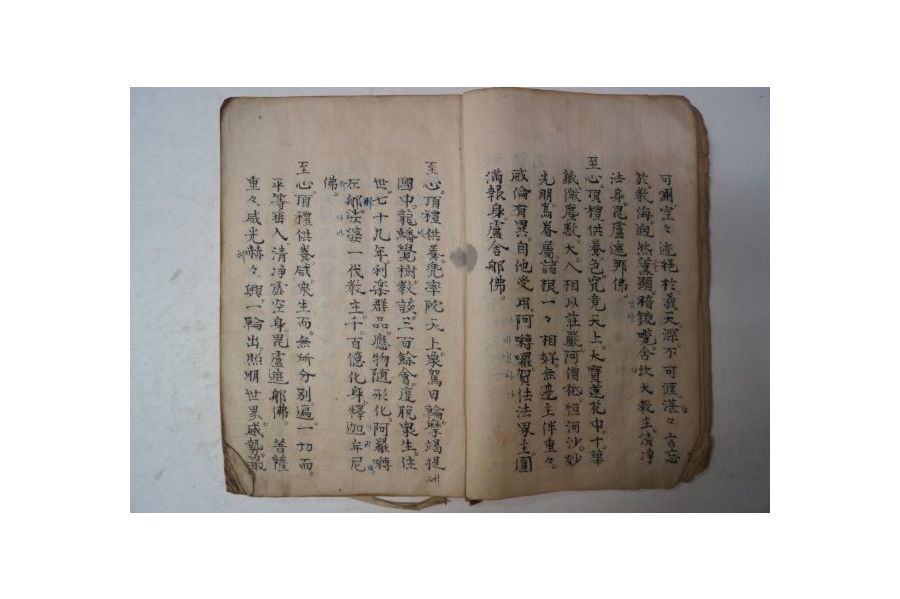 可測空々迹絕於義天深不可涯湛々言忘
於敎海逈然蕙顯稽鏡嚂含坎大敎主淸淨
法身毘盧遮那佛
至心頂禮供養色究竟天上大寶蓮花中十華
藏微塵数大人相以莊嚴阿僧秪恒河沙妙
光明爲眷屬諸根一々相好無邊主伴重々
咸倫有異自他受用阿囀囉賀佉法界主圓
滿報身盧舍那佛
至心頂禮供養兠率陀天上乘駕日輪摩竭提
國中龍蟠覺樹敎談三百餘會度脫衆生住
世七十九年利楽群品應物随形化阿羅囀
左那娑婆一代敎主千百億化身釋迦牟尼
佛
至心頂禮供養咸衆生而無所分別遍一切而
平等普入淸淨虛空身毘盧遮那佛 菩薩
重々咸光赫々興一輪出照明世界咸勢